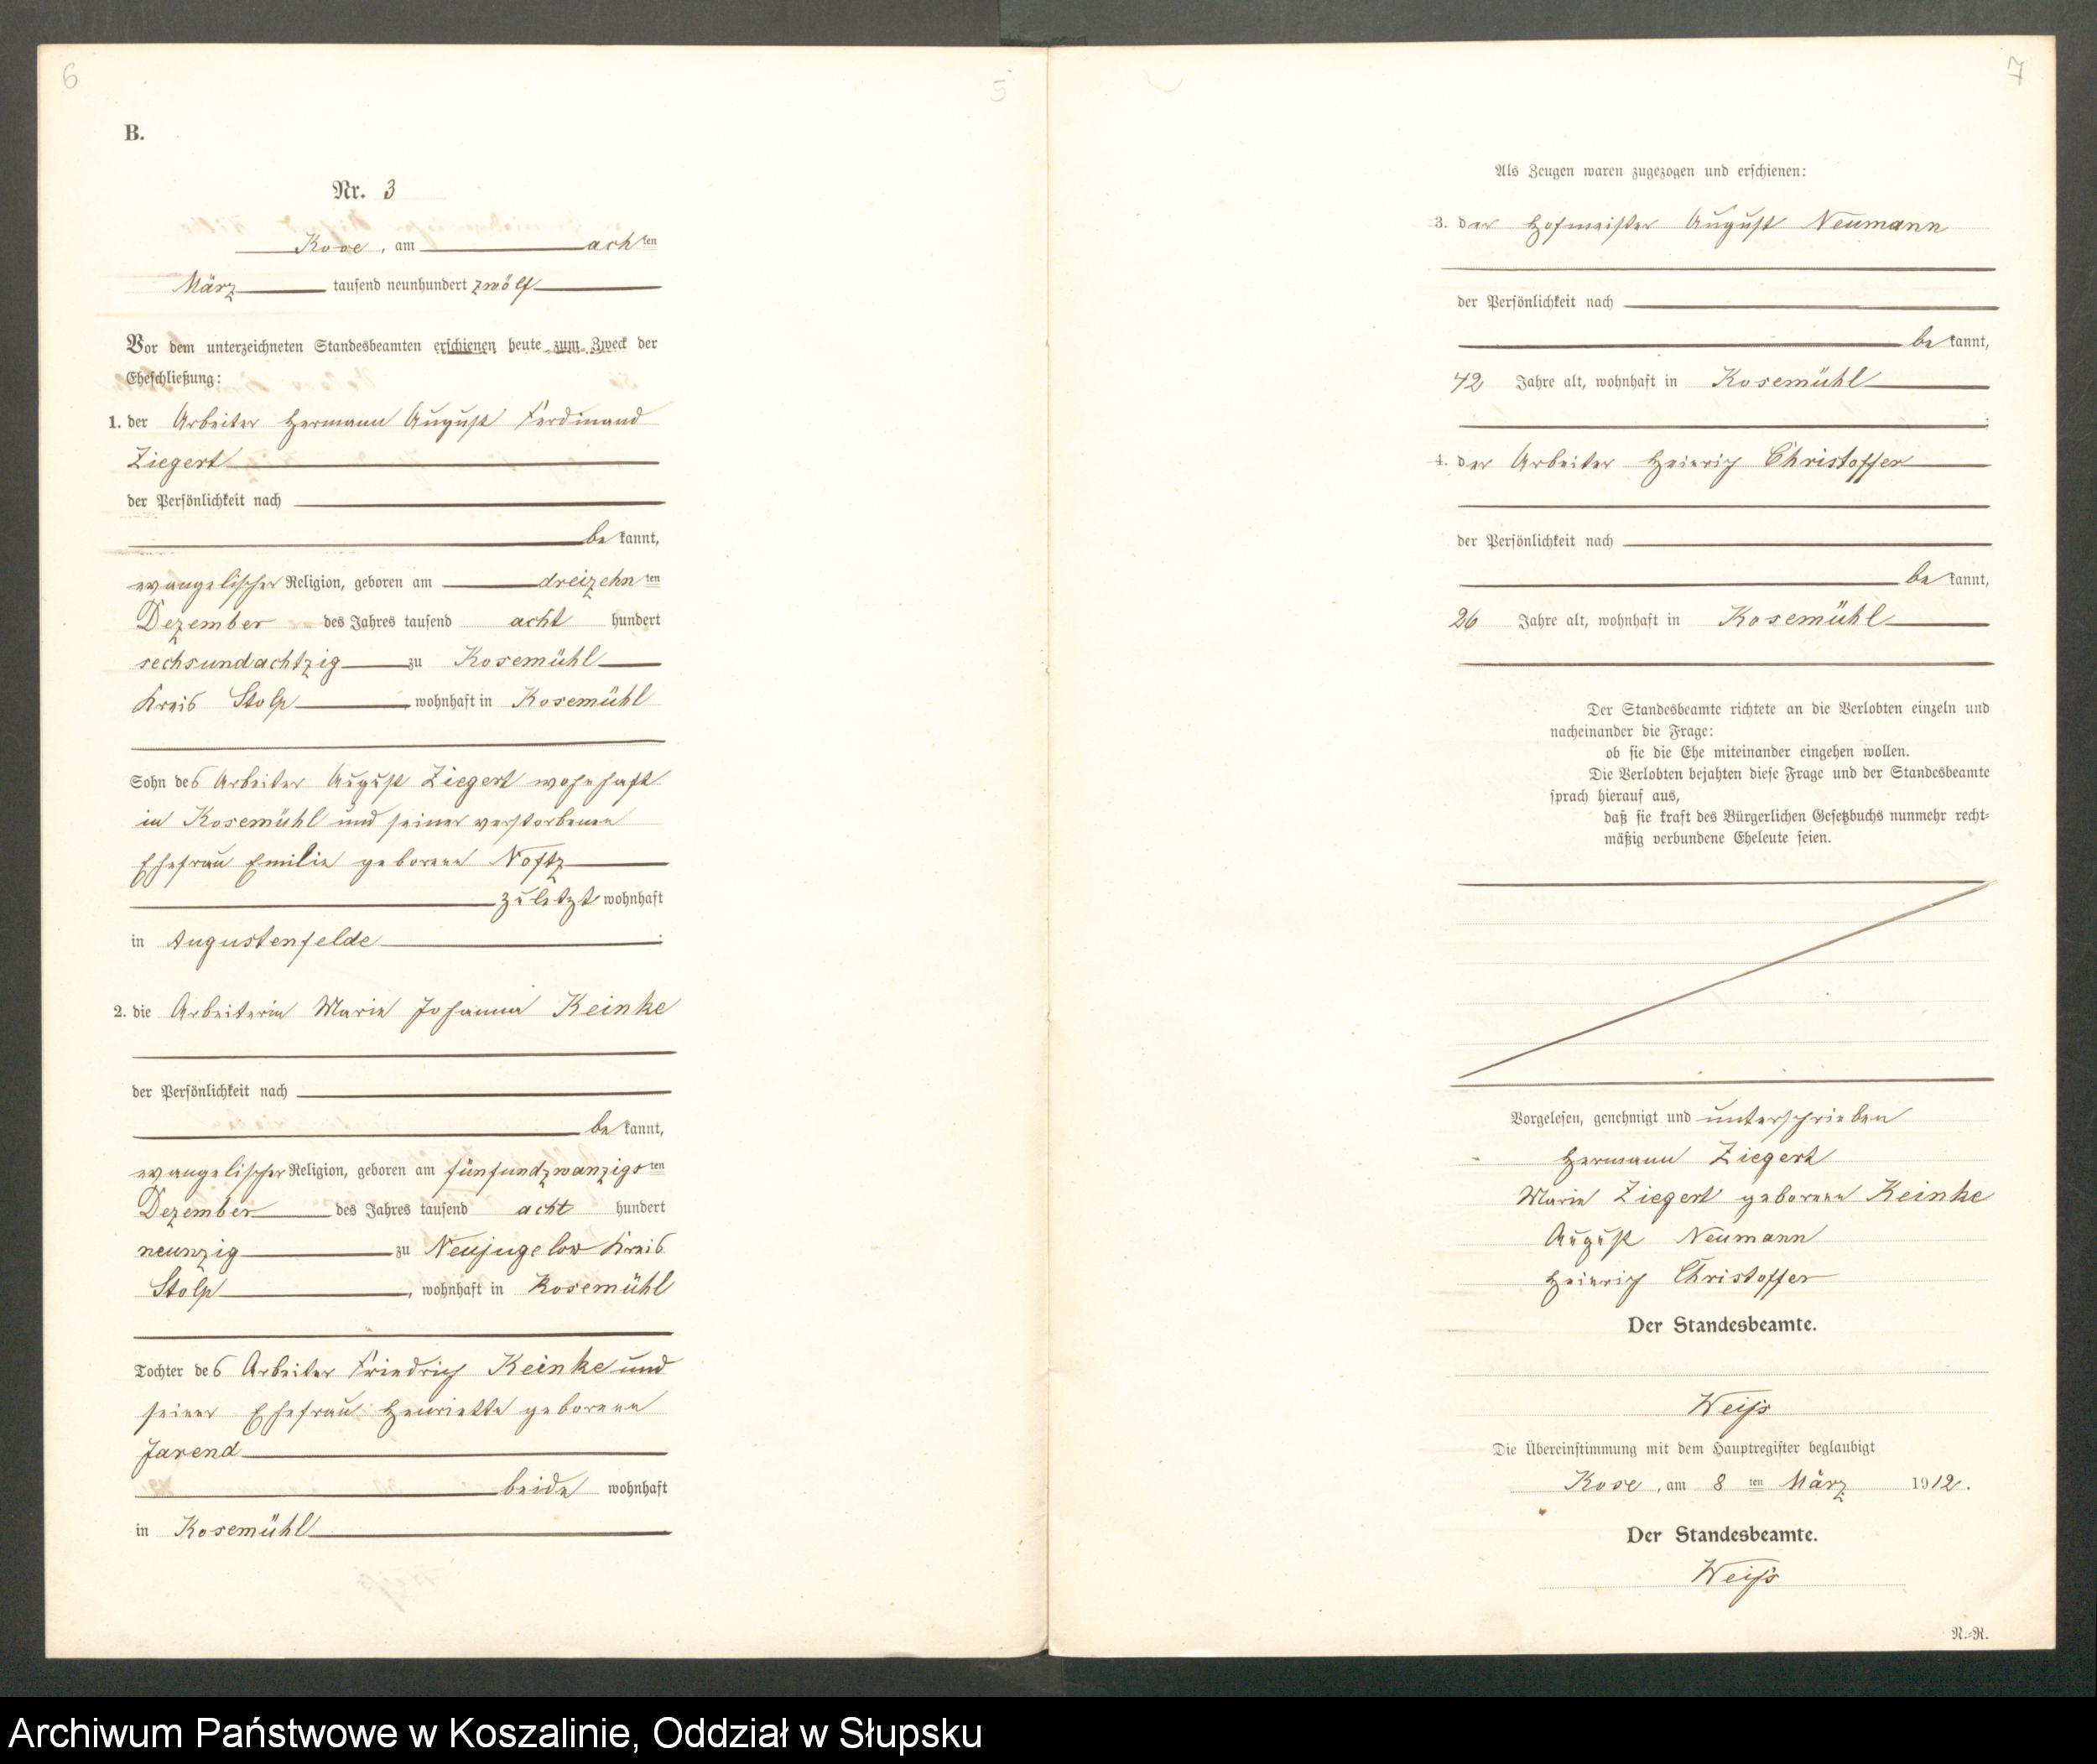 6
5
B.
Nr. 3
Kose, am achten
März tausend neunhundert zwölf
Vor dem unterzeichneten Standesbeamten erschienen heute zum Zweck der
Eheschließung:
1. der Arbeiter Hermann August Ferdinand
Ziegert
der Persönlichkeit nach
be kannt,
evangelischer Religion, geboren am dreizehn ten
Dezember des Jahres tausend acht hundert
sechsundachtzig zu Kosemühl
Kreis Stolp, wohnhaft in Kosemühl
Sohn des Arbeiter August Ziegert wohnhaft
in Kosemühl und seiner verstorbenen
Ehefrau Emilie geborene Noffz
zuletzt wohnhaft
in Augustenfelde.
2. die Arbeiterin Marie Johanna Keinke
der Persönlichkeit nach
be kannt,
evangelischer Religion, geboren am fünfundzwanzigsten
Dezember des Jahres tausend acht hundert
neunzig zu Neujugelow Kreis
Stolp, wohnhaft in Kosemühl
Tochter des Arbeiter Friedrich Keinke und
seiner Ehefrau Henriette geborene
Jarend
beide wohnhaft
in Kosemühl
7
Als Zeugen waren zugezogen und erschienen:
3. der Hofmeister August Neumann
der Persönlichkeit nach
be kannt,
42 Jahre alt, wohnhaft in Kosemühl
;
4. der Arbeiter Heinrich Christoffer
der Persönlichkeit nach
be kannt,
26 Jahre alt, wohnhaft in Kosemühl
Der Standesbeamte richtete an die Verlobten einzeln und
nacheinander die Frage:
ob sie die Ehe miteinander eingehen wollen.
Die Verlobten bejahten diese Frage und der Standesbeamte
sprach hierauf aus,
daß sie kraft des Bürgerlichen Gesetzbuchs nunmehr recht-
mäßig verbundene Eheleute seien.
Vorgelesen, genehmigt und unterschrieben
Hermann Ziegert
Marie Ziegert geborene Keinke
August Neumann
Heinrich Christoffer
Der Standesbeamte.
Weiß
Die Übereinstimmung mit dem Hauptregister beglaubigt
Kose, am 8 ten März 1912.
Der Standesbeamte.
Weiß
N.-R.
Archiwum Państwowe w Koszalinie, Oddział w Słupsku